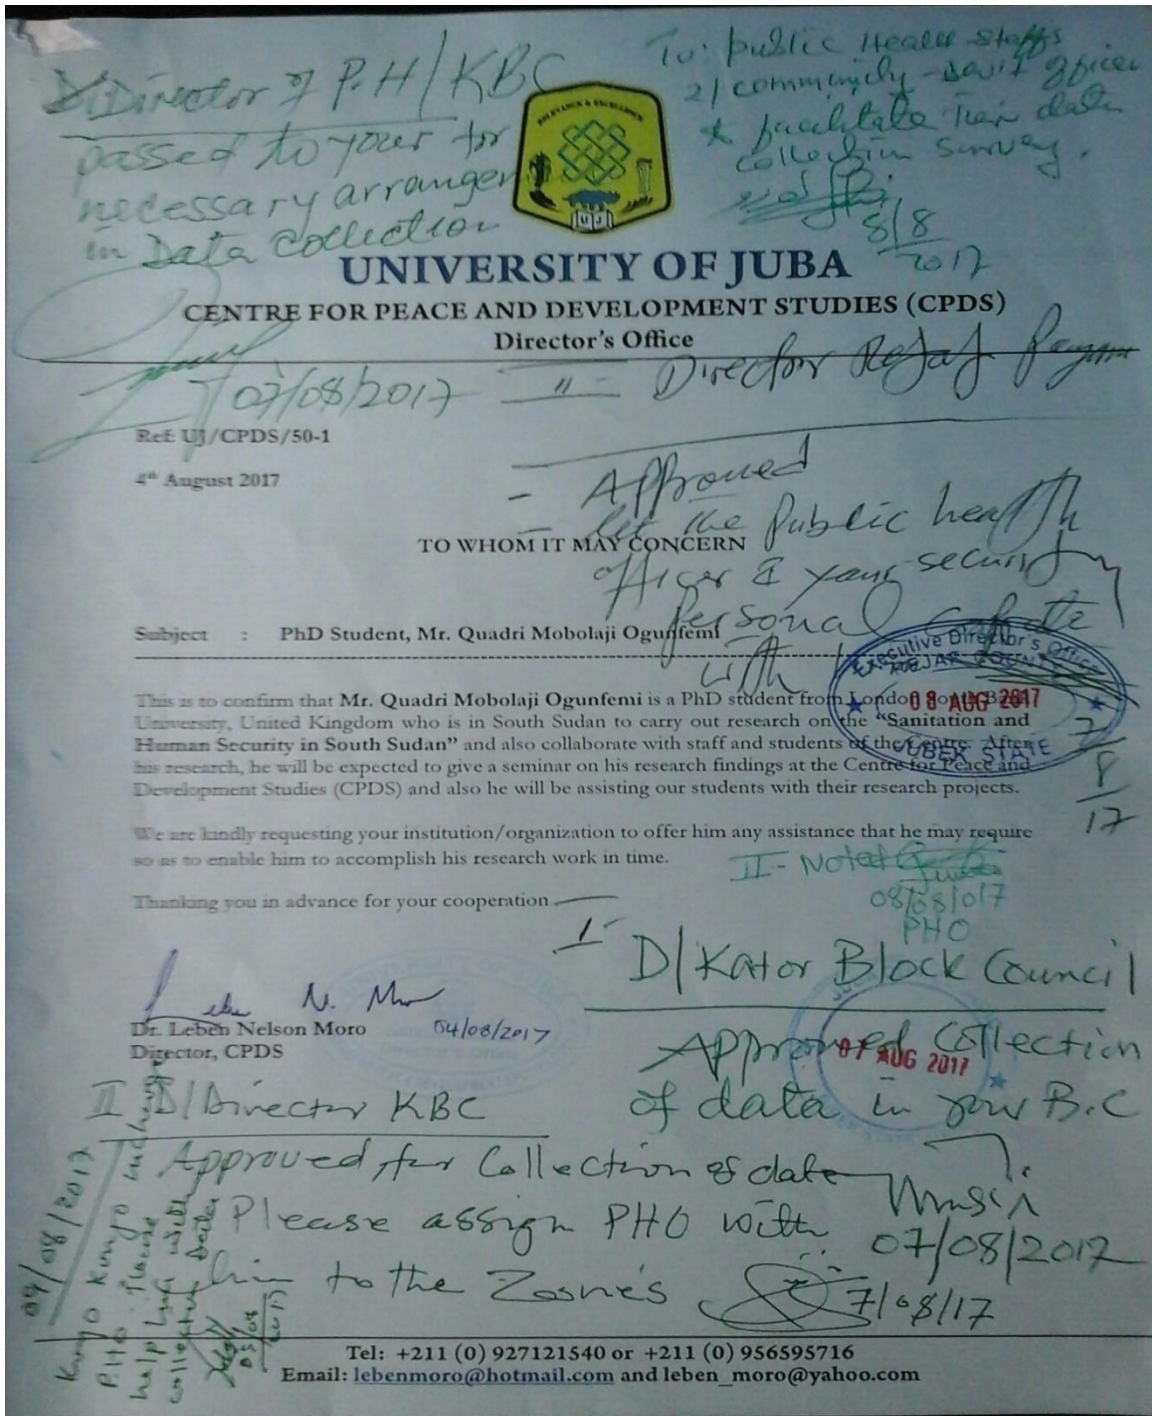 Director of P.H/KBC
passed to your for
necessary arranger
in Data collection
07/08/2017
To: public Health staffs
2/ community officer
* facilitate data
collection survey.
8/8
2017
RELEVANCE & EXCELLENCE
U J
UNIVERSITY OF JUBA
CENTRE FOR PEACE AND DEVELOPMENT STUDIES (CPDS)
Director's Office
II Director Rejaf Payam
Ref: UJ/CPDS/50-1
4th August 2017
- Approved
- let the public health
officer & your security
personal
with
TO WHOM IT MAY CONCERN
Subject : PhD Student, Mr. Quadri Mobolaji Ogunfemi
Executive Director's Office
REJAF COUNTY
08 AUG 2017
JUBEK STATE
7
8
17
This is to confirm that Mr. Quadri Mobolaji Ogunfemi is a PhD student from London South Bank
University, United Kingdom who is in South Sudan to carry out research on the "Sanitation and
Human Security in South Sudan" and also collaborate with staff and students of the Centre. After
his research, he will be expected to give a seminar on his research findings at the Centre for Peace and
Development Studies (CPDS) and also he will be assisting our students with their research projects.
We are kindly requesting your institution/organization to offer him any assistance that he may require
so as to enable him to accomplish his research work in time.
II - Noted
08/08/017
PHO
Thanking you in advance for your cooperation
I- D/Kator Block Council
Approved collection
of data in your B.C
07 AUG 2017
07/08/2017
Leben N. Moro
Dr. Leben Nelson Moro 04/08/2017
Director, CPDS
II D/Director KBC
Approved for Collection of date
Please assign PHO with
him to the Zones
7/08/17
09/08/2017
Tel: +211 (0) 927121540 or +211 (0) 956595716
Email: lebenmoro@hotmail.com and leben_moro@yahoo.com